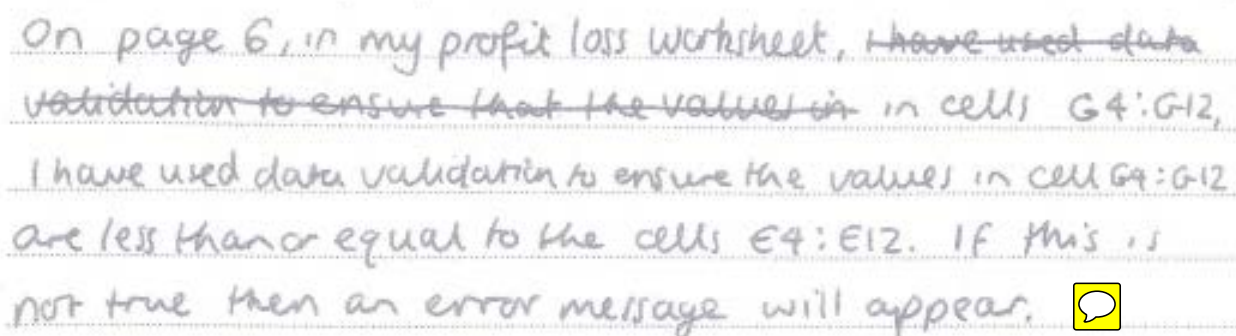 On page 6, in my profit loss worksheet, I have used data
validation to ensure that the values in in cells G4:G12,
I have used data validation to ensure the values in cell G4:G12
are less than or equal to the cells E4:E12. If this is
not true then an error message will appear.